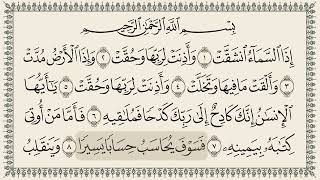 بِسْمِ ٱللَّهِ ٱلرَّحْمَٰنِ ٱلرَّحِيمِ
إِذَا ٱلسَّمَآءُ ٱنشَقَّتْ ١ وَأَذِنَتْ لِرَبِّهَا وَحُقَّتْ ٢ وَإِذَا ٱلْأَرْضُ مُدَّتْ
٣ وَأَلْقَتْ مَا فِيهَا وَتَخَلَّتْ ٤ وَأَذِنَتْ لِرَبِّهَا وَحُقَّتْ ٥ يَٰٓأَيُّهَا
ٱلْإِنسَٰنُ إِنَّكَ كَادِحٌ إِلَىٰ رَبِّكَ كَدْحًا فَمُلَٰقِيهِ ٦ فَأَمَّا مَنْ أُوتِىَ
كِتَٰبَهُۥ بِيَمِينِهِۦ ٧ فَسَوْفَ يُحَاسَبُ حِسَابًا يَسِيرًا ٨ وَيَنقَلِبُ